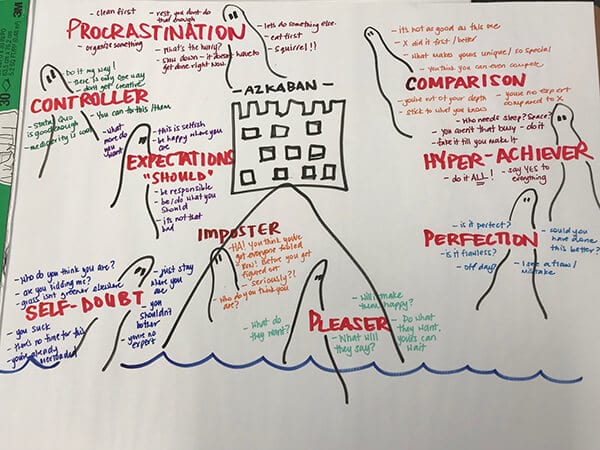 30
3M
- clean first
- rest, you dont do that enough
PROCRASTINATION
- organize something
- What's the hurry?
- Slow down - it doesnt have to get done right now
- lets do something else
- eat first
- squirrel!!
- AZKABAN -
- its not as good as this one
- X did it first / better
- What makes you unique / so special
- you think you can even compete
COMPARISON
- you're out of your depth
- stick to what you know
- you're no expert compared to X
- Do it my way!
- there is only one way
- dont get creative
CONTROLLER
- Status Quo is good enough
- mediocrity is cool
- You can fix this/them
- what more do you want
- this is selfish
- be happy where you are
EXPECTATIONS
"SHOULD"
- be responsible
- be/do what you should
- its not that bad
- Who needs sleep? Space?
- you aren't that busy - do it
- fake it till you make it
HYPER-ACHIEVER
- do it ALL!
- say YES to everything
- is it perfect?
- is it flawless?
PERFECTION
- off day?
- could you have done this better?
- I see a flaw / mistake
IMPOSTER
- HA! You think you've got everyone fooled
- RUN! Before you get figured out
- seriously?!
- Who do you think you are?
- Who do you think you are?
- are you kidding me?
- grass isnt greener elsewhere
SELF-DOUBT
- you suck
- theres no time for this
- you're already overloaded
- just stay where you are
- you shouldn't bother
- you're no expert
- Will it make them happy?
PLEASER
- What do they want?
- What will they say?
- Do what they want, yours can wait